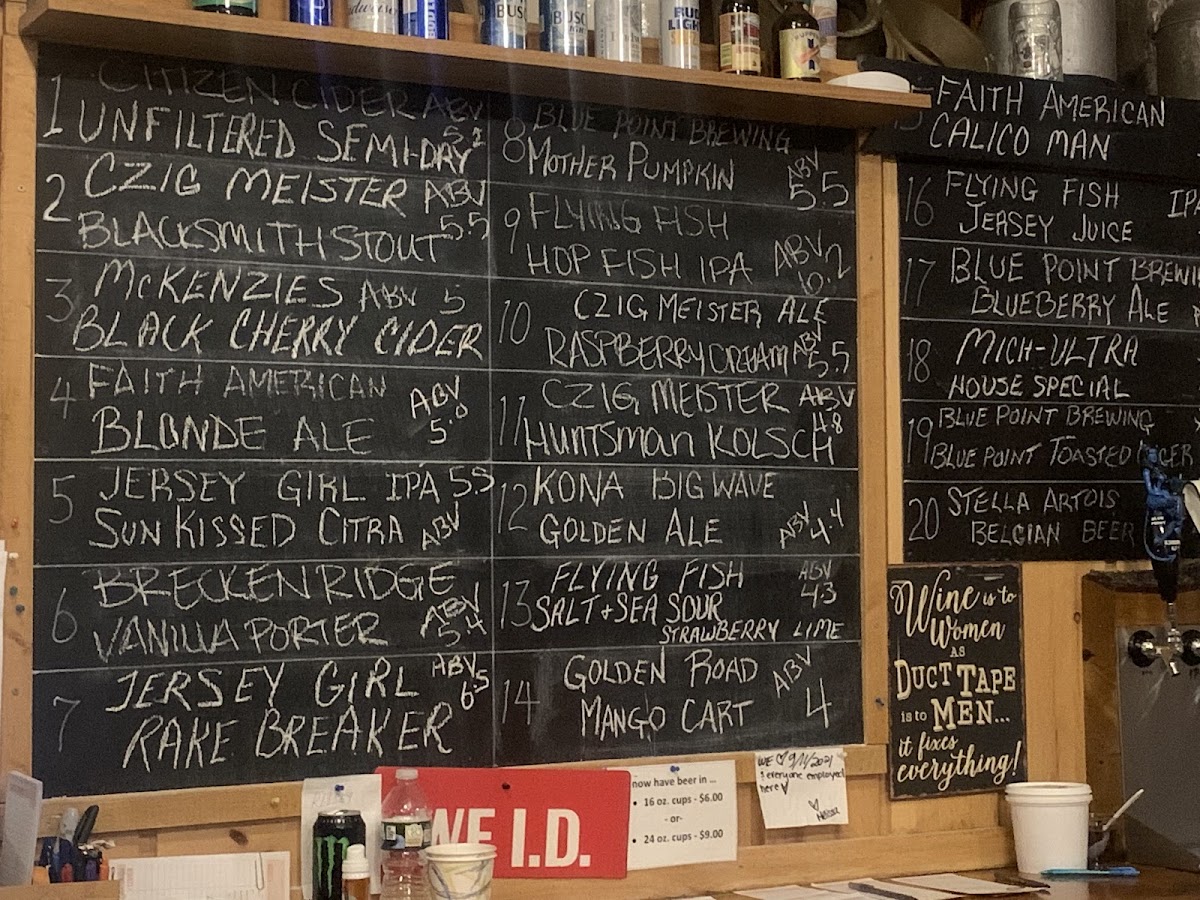 1 CITIZEN CIDER ABV 5.2
UNFILTERED SEMI-DRY
2 CZIG MEISTER ABV 5.5
BLACKSMITH STOUT
3 McKENZIES ABV 5
BLACK CHERRY CIDER
4 FAITH AMERICAN ABV 5.0
BLONDE ALE
5 JERSEY GIRL IPA 5.5
SUN KISSED CITRA ABV
6 BRECKENRIDGE ABV 5.4
VANILLA PORTER
7 JERSEY GIRL ABV 6.5
RAKE BREAKER
8 BLUE POINT BREWING
MOTHER PUMPKIN ABV 5.5
9 FLYING FISH
HOP FISH IPA ABV 6.2
10 CZIG MEISTER ALE
RASPBERRY CREAM ABV 5.5
11 CZIG MEISTER ABV 4.8
HUNTSMAN KOLSCH
12 KONA BIG WAVE
GOLDEN ALE ABV 4.4
13 FLYING FISH ABV 4.3
SALT + SEA SOUR
STRAWBERRY LIME
14 GOLDEN ROAD ABV 4
MANGO CART
FAITH AMERICAN
CALICO MAN
16 FLYING FISH IPA
JERSEY JUICE
17 BLUE POINT BREWIN
BLUEBERRY ALE
18 MICH-ULTRA
HOUSE SPECIAL
19 BLUE POINT BREWING
BLUE POINT TOASTED
20 STELLA ARTOIS
BELGIAN BEER
Wine is to
Women
AS
DUCT TAPE
is to MEN...
it fixes
everything!
WE I.D.
now have beer in ...
• 16 oz. cups - $6.00
- or-
• 24 oz. cups - $9.00
WE ♡ 9/11/2021
everyone employed
here
BUSCH
BUD
LIGHT